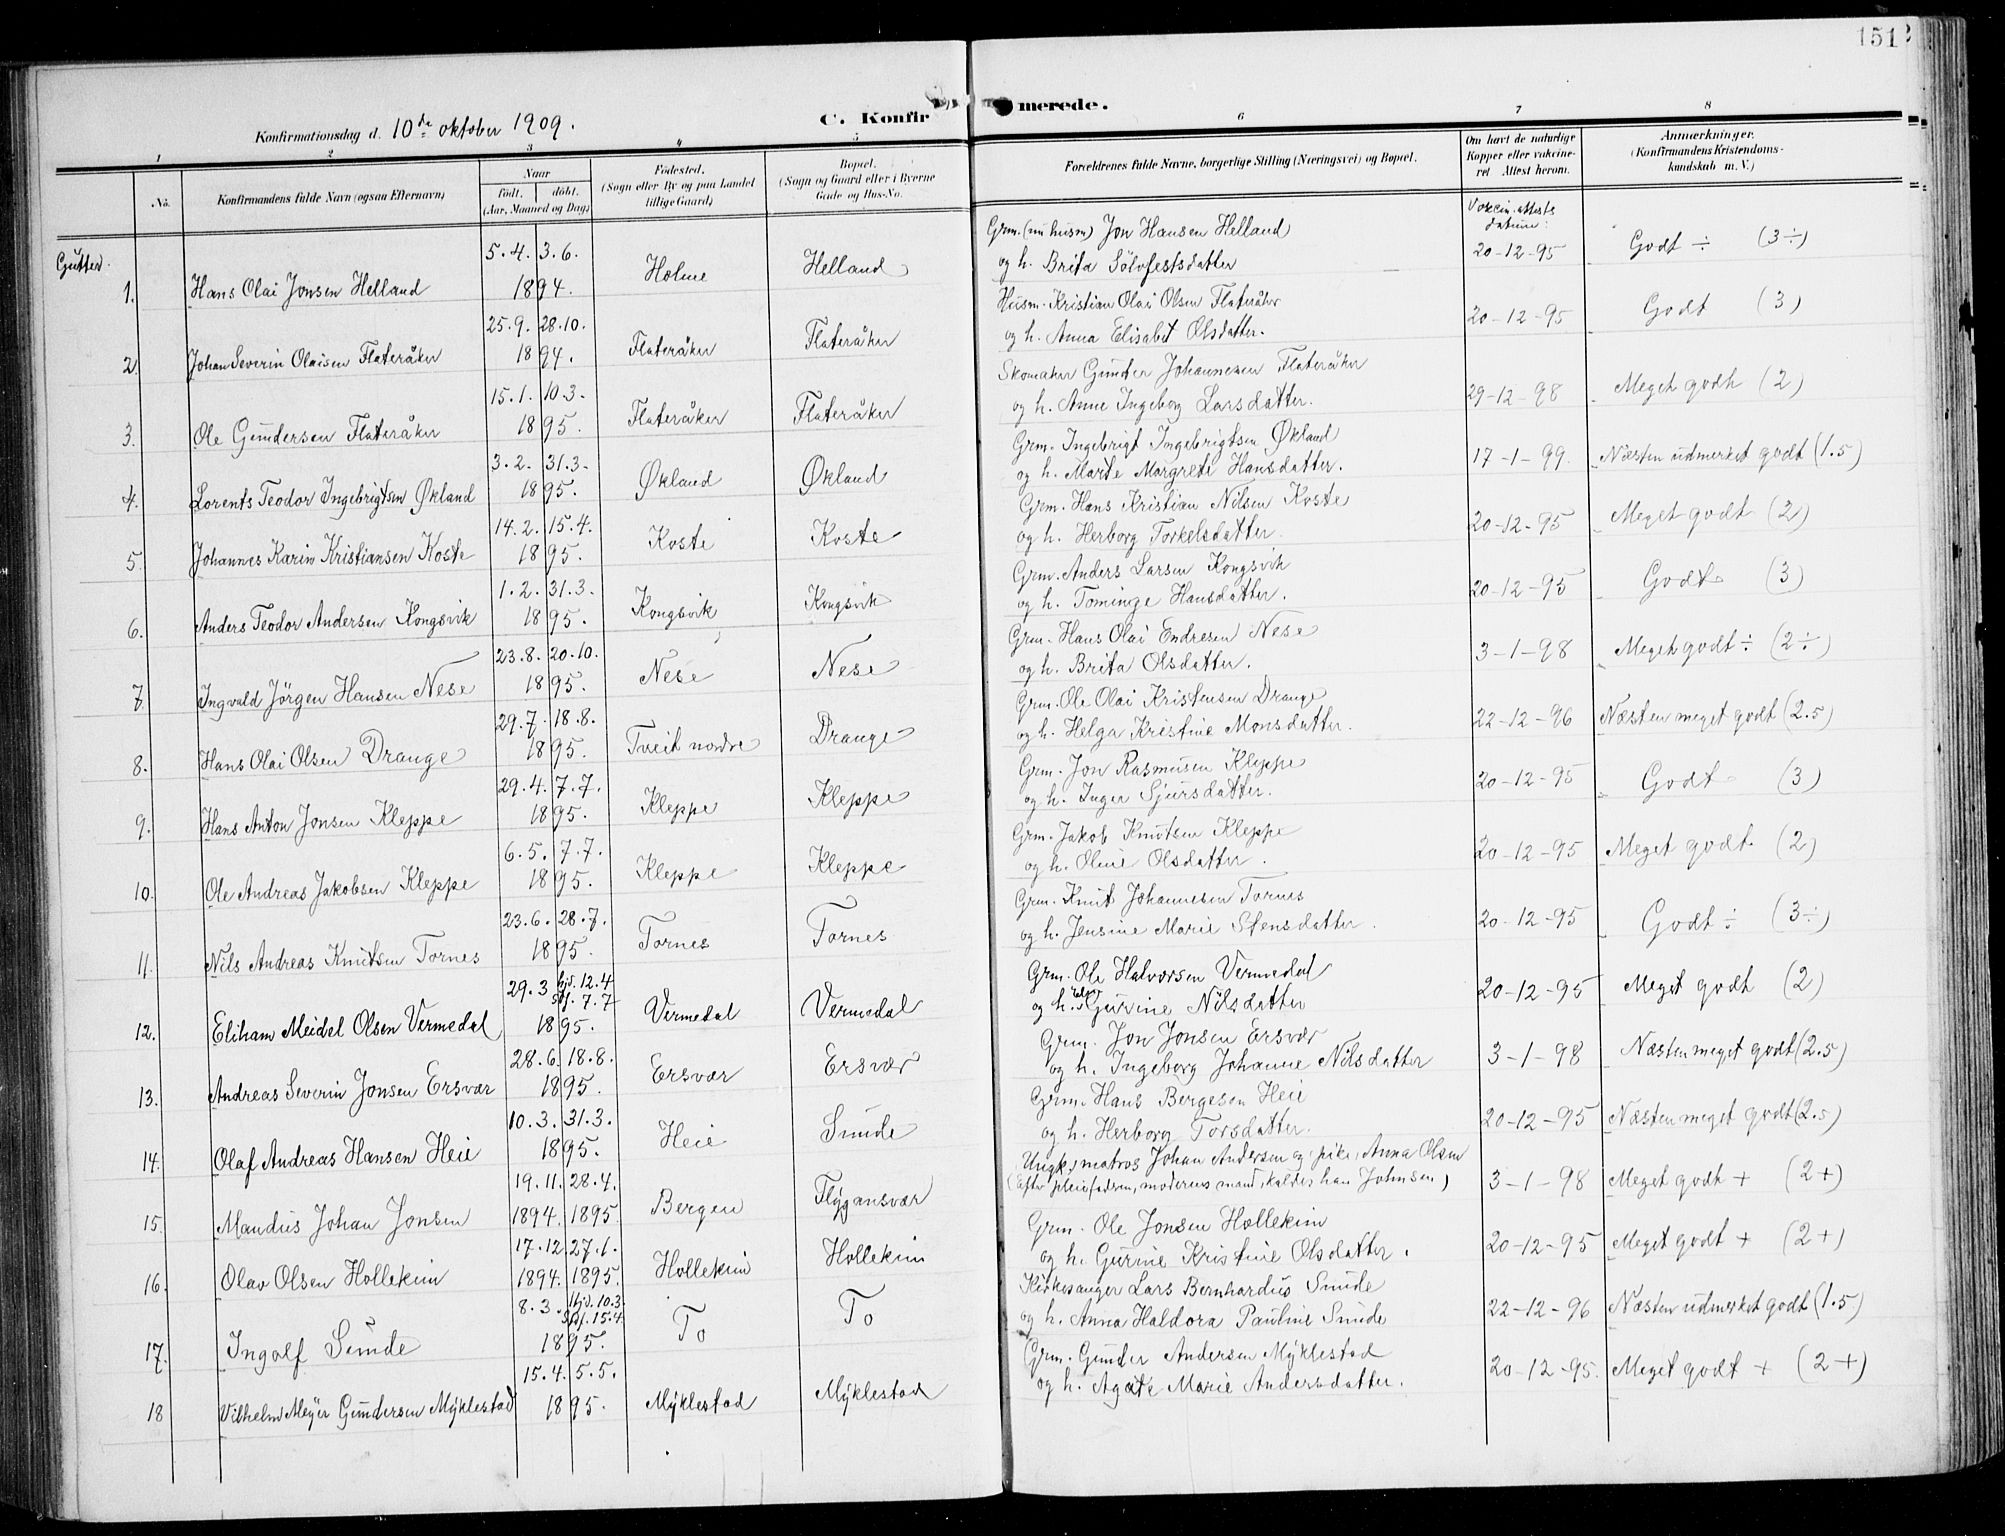 151
Konfirmationsdag d. 10de oktober 1909.
C. Konfirmerede.
1 2 3 4 5 6 7 8
No.
Konfirmandens fulde Navn (ogsaa Efternavn)
Naar
født. døbt.
(Aar, Maaned og Dag)
Fødested.
(Sogn eller By og paa Landet
tillige Gaard)
Bopæl.
(Sogn og Gaard eller i Byerne
Gade og Hus-No.
Forældrenes fulde Navne, borgerlige Stilling (Næringsvei) og Bopæl.
Om havt de naturlige
Kopper eller vaksine-
ret Attest herom.
Anmærkninger.
(Konfirmandens Kristendoms-
kundskab m. V.)
Vakcin.attests
datum:
Gutter.
1. Hans Olai Jonsen Helland 5.4. 3.6. 1894. Holme Helland
Grm. (nu husm) Jon Hansen Helland
og h. Brita Sölvfestsdatter
20-12-95 Godt ÷ (3÷)
2. Johan Severin Olaisen Flateråker 25.9. 28.10. 1894. Flateråker Flateråker
Husm. Kristian Olai Olsen Flateråker
og h. Anna Elisabet Olsdatter.
20-12-95 Godt (3)
3. Ole Gundersen Flateråker 15.1. 10.3. 1895. Flateråker Flateråker
Skomaker Gunder Johannesen Flateråker
og h. Anne Ingeborg Larsdatter.
29-12-98 Meget godt (2)
4. Lorents Teodor Ingebrigtsen Økland 3.2. 31.3. 1895. Økland Økland
Grm. Ingebrigt Ingebrigtsen Økland
og h. Marte Margrete Hansdatter.
17-1-99. Næsten udmerket godt (1.5)
5. Johannes Karin Kristiansen Koste 14.2. 15.4. 1895. Koste Koste
Grm. Hans Kristian Nilsen Koste
og h. Herborg Torkelsdatter.
20-12-95 Meget godt (2)
6. Anders Teodor Andersen Kongsvik 1.2. 31.3. 1895. Kongsvik Kongsvik
Grm. Anders Larsen Kongsvik
og h. Tominge Hansdatter.
20-12-95 Godt (3)
7. Ingvald Jörgen Hansen Nese 23.8. 20.10. 1895. Nese Nese
Grm. Hans Olai Endresen Nese
og h. Brita Olsdatter.
3-1-98 Meget godt ÷ (2÷)
8. Hans Olai Olsen Drange 29.7. 18.8. 1895. Tveit nordre Drange
Grm. Ole Olai Kristensen Drange
og h. Helga Kristine Monsdatter.
22-12-96 Næsten meget godt (2.5)
9. Hans Anton Jonsen Kleppe 29.4. 7.7. 1895. Kleppe Kleppe
Grm. Jon Rasmusen Kleppe
og h. Inger Sjursdatter.
20-12-95 Godt (3)
10. Ole Andreas Jakobsen Kleppe 6.5. 7.7. 1895. Kleppe Kleppe
Grm. Jakob Knutsen Kleppe
og h. Oline Olsdatter.
20-12-95 Meget godt. (2)
11. Nils Andreas Knutsen Tornes 23.6. 28.7. 1895. Tornes Tornes
Grm. Knut Johannesen Tornes
og h. Jensine Marie Stensdatter.
20-12-95 Godt ÷ (3÷)
12. Eliham Meidel Olsen Vermedal 29.3 hjd. 12.4 stf. 7.7 1895. Vermedal Vermedal
Grm. Ole Halvorsen Vermedal
og h. Gurine Nilsdatter
20-12-95 Meget godt (2)
13. Andreas Severin Jonsen Ersvær 28.6. 18.8. 1895. Ersvær Ersvær
Grm. Jon Jonsen Ersvær
og h. Ingeborg Johanne Nilsdatter
3-1-98 Næsten meget godt (2.5)
14. Olaf Andreas Hansen Heie 10.3. 31.3. 1895. Heie Sunde
Grm. Hans Bergesen Heie
og h. Herborg Torsdatter.
20-12-95 Næsten meget godt (2.5)
15. Mandus Johan Jonsen 19.11. 28.4. 1894. 1895. Bergen Flygansvær
Ungk. matros Johan Andersen og pike Anna Olsen
(Efter pleiefaderen, moderens mand, kaldes han Johnsen)
3-1-98 Meget godt + (2+)
16. Olav Olsen Hollekim 17.12. 27.1. 1894. 1895. Hollekim Hollekim
Grm. Ole Jonsen Hollekim
og h. Gurine Kristine Olsdatter.
20-12-95 Meget godt + (2+)
17. Ingolf Sunde 8.3. hjd. 10.3. stf. 15.4. 1895. To To
Kirkesanger Lars Bernhardus Sunde
og h. Anna Haldora Pauline Sunde
22-12-96 Næsten udmerket godt (1.5)
18 Vilhelm Meyer Gundersen Myklestad 15.4. 5.5. 1895. Myklestad Myklestad
Grm. Gunder Andersen Myklestad
og h. Agate Marie Andersdatter.
20-12-95. Meget godt + (2+)